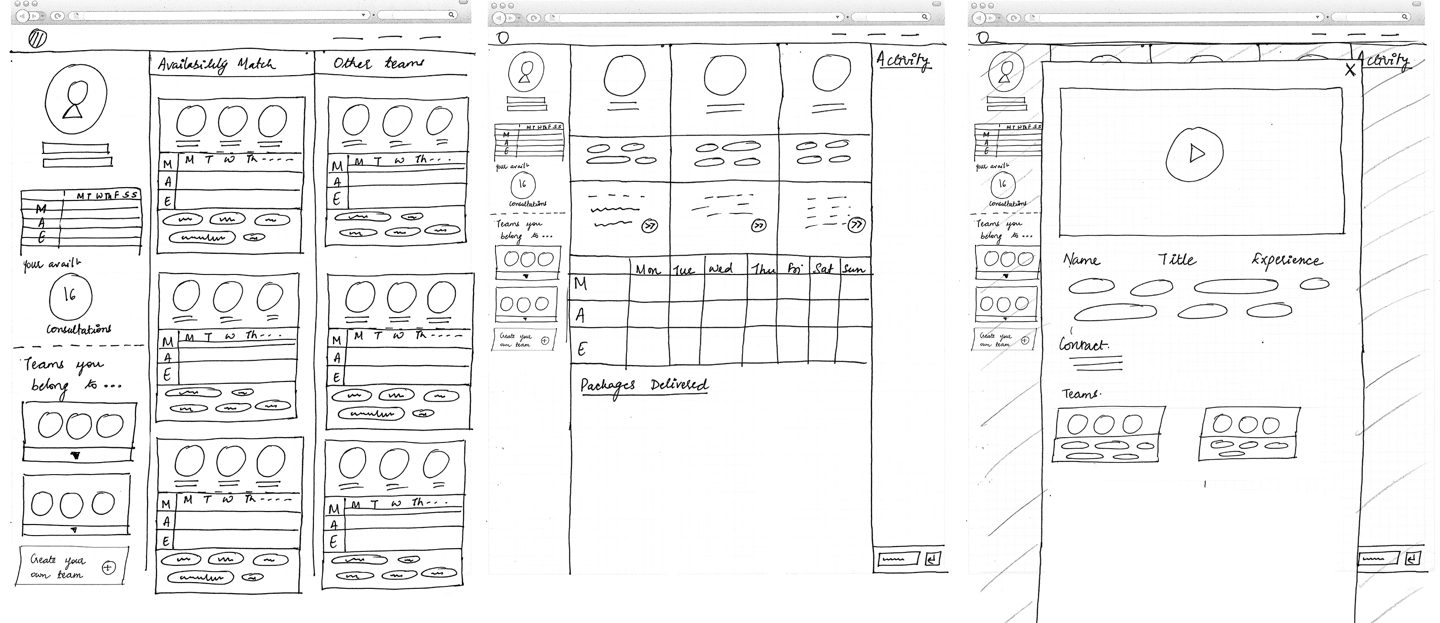 Availability Match
Other teams
M T W Th F S S
M
A
E
your availt
16
consultations
Teams you
belong to ...
Create your
own team +
M T W Th ----
M
A
E
M T W Th ...
M
A
E
M T W Th ----
M
A
E
M T W Th ...
M
A
E
M T W Th ----
M
A
E
M T W Th ...
M
A
E
Activity
M T W Th F S S
M
A
E
your availt
16
consultations
Teams you
belong to ...
Create your
own team +
Mon Tue Wed Thu Fri Sat Sun
M
A
E
Packages Delivered
Activity
X
M T W Th F S S
M
A
E
your availt
16
consultations
Teams you
belong to ...
Create your
own team +
Name Title Experience
Contact.
Teams.